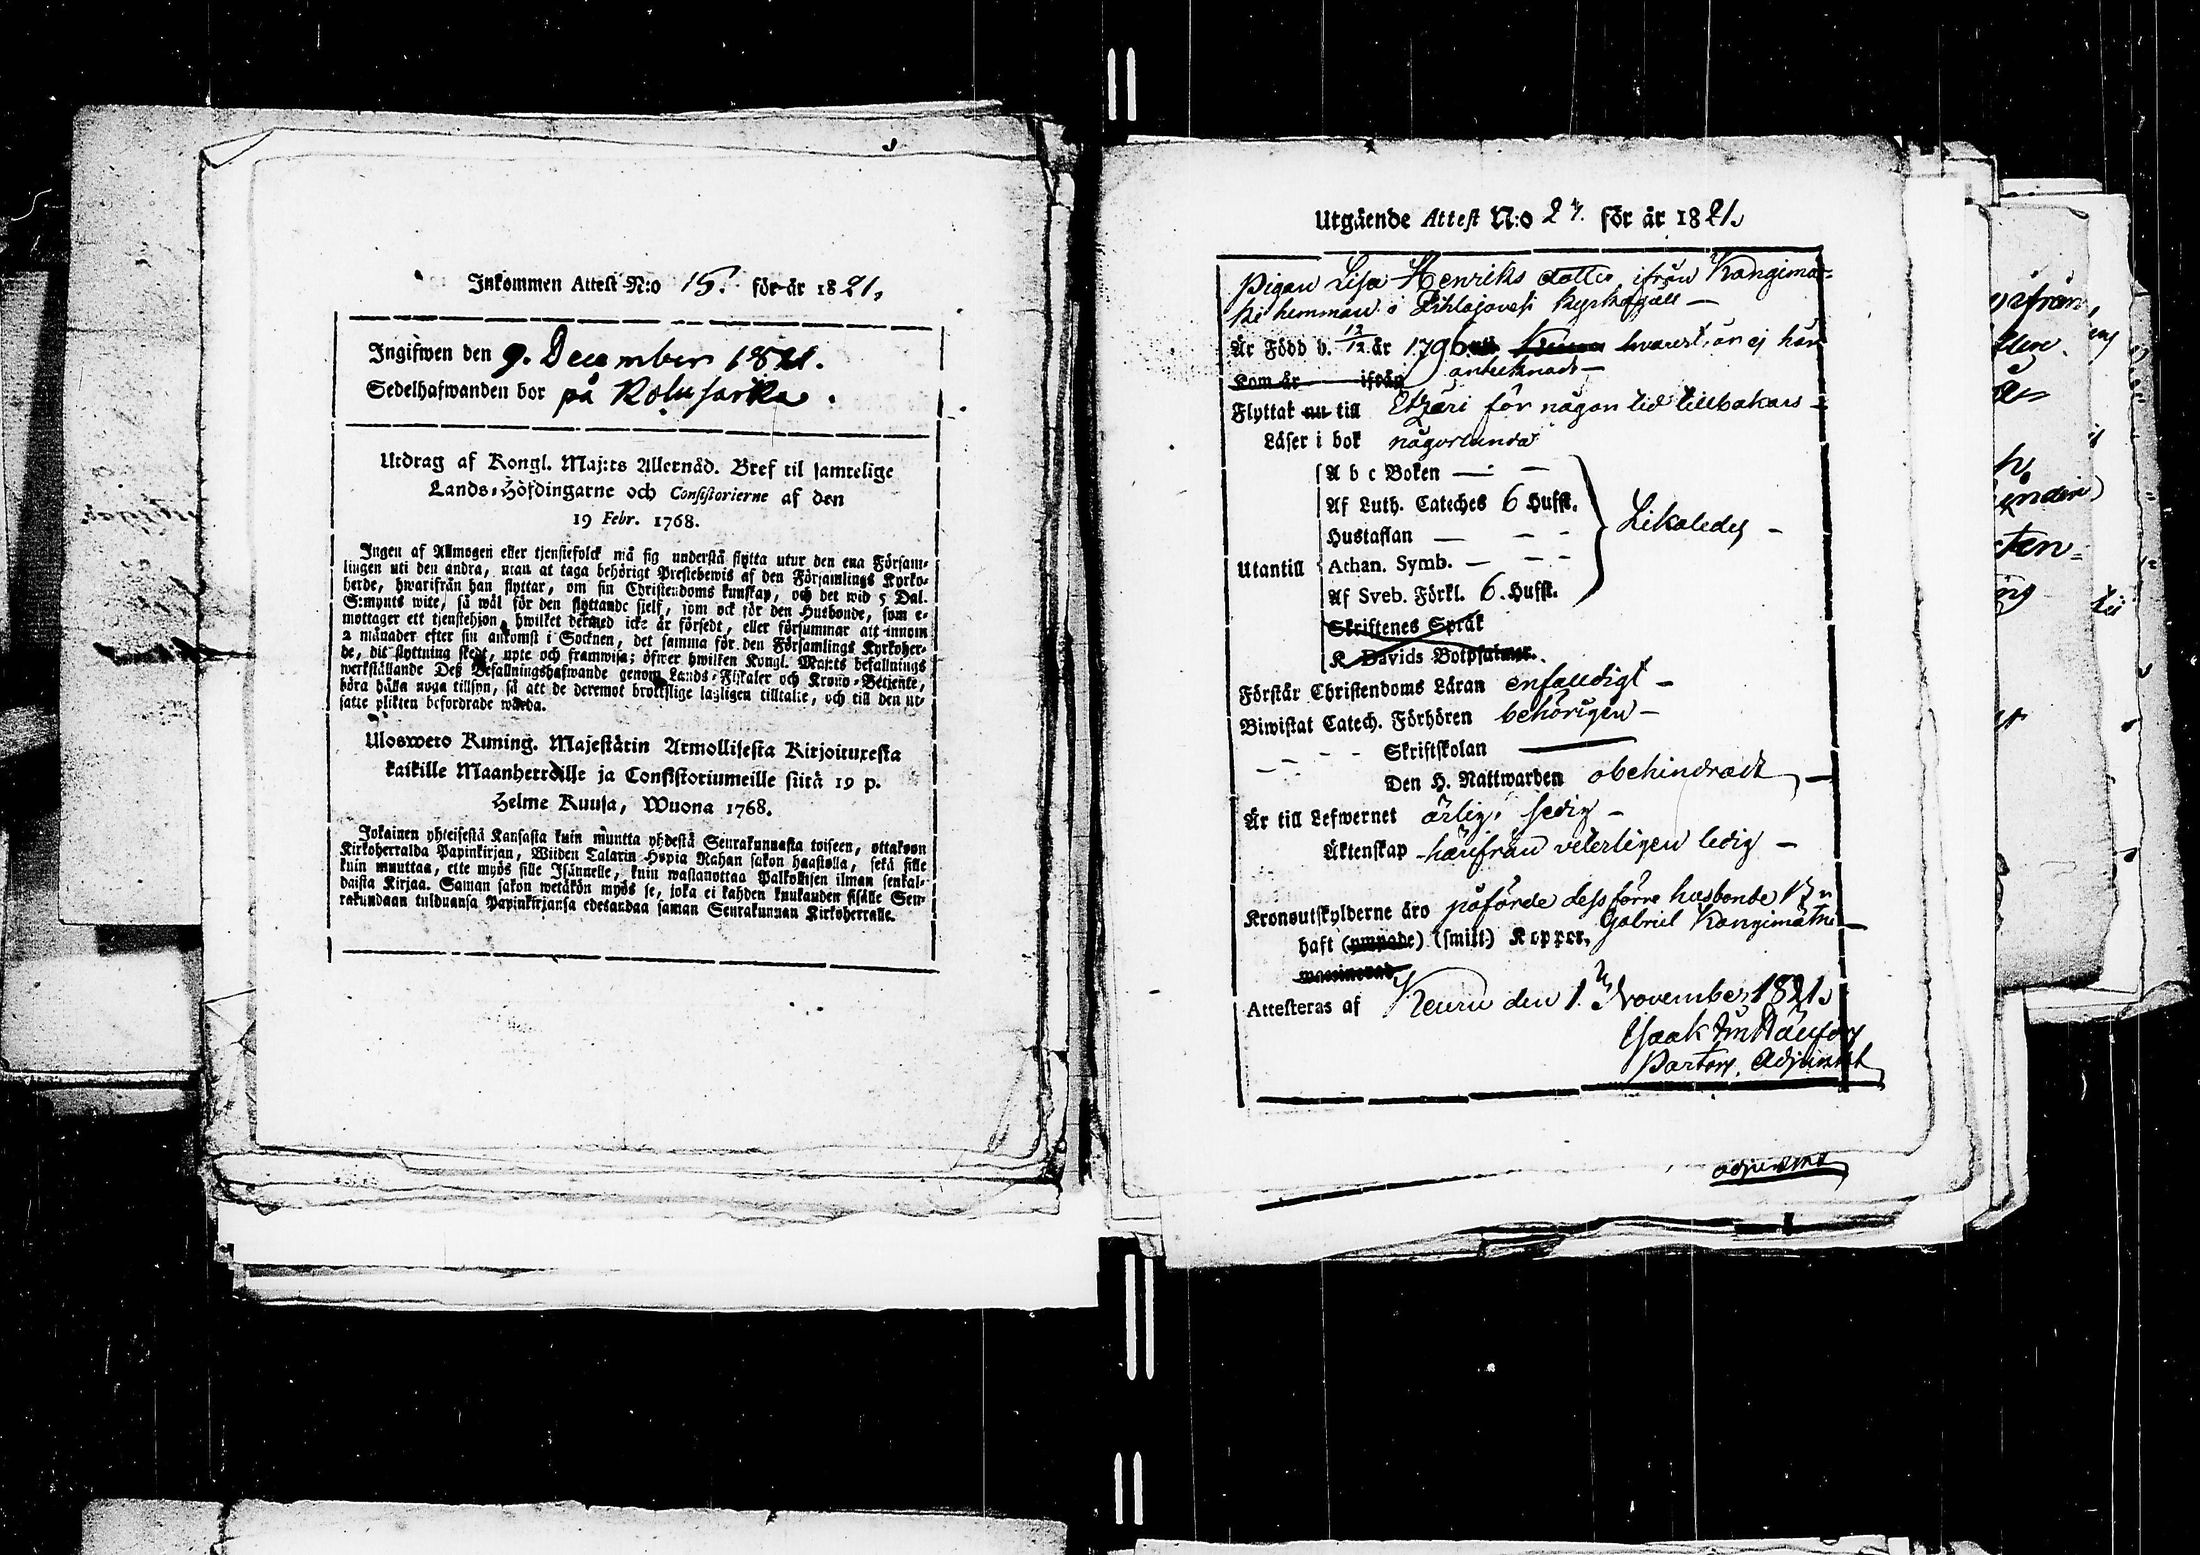 Inkommen Attest N:o 15. för år 1821.
Ingifwen den 9. December 1821.
Sedelhafwanden bor på Kolusarka.
Utdrag af Kongl. Maj:ts Allernåd. Bref til samtelige
Lands-Höfdingarne och Consistorierne af den
19 Febr. 1768.
Ingen af Allmogen eller tjenstefolck må sig understå flytta utur den ena Försam-
lingen uti den andra, utan at taga behörigt Prestebewis af den Församlings Kyrko-
herde, hwarifrån han flyttar, om sin Christendoms kunskap, och det wid 5 Dal.
S:mynts wite, så wäl för den flyttande sielf, som ock för den Husbonde, som e-
mottager ett tjenstehjon, hwilket dermed icke är försedt, eller försummar att innom
2 månader efter sin ankomst i Socknen, det samma för den Församlings Kyrkoher-
de, dit flyttning skedt, upte och framwisa; öfwer hwilken Kongl. Maj:ts befallnings
werkställande Deß Befallningshafwande genom Lands-Fiskaler och Krono-Betjente,
böra hålla noga tillsyn, så att de deremot brottslige lagligen tilltalte, och till den ut-
satte plikten befordrade warda.
Uloswero Kuning. Majestätin Armollisesta Kirjoituxesta
kaikille Maanherroille ja Consistoriumeille siitä 19 p.
Helme Kuusa, Wuona 1768.
Jokainen yhteisestä Kansasta kuin muutta yhdestä Seurakunnasta toiseen, ottakoon
Kirkoherralda Papinkirjan, Wiiden Talarin Hopia Rahan sakon haastolla, sekä sille
kuin muuttaa, ette myös sille Isännelle, kuin wastanottaa Palkollisen ilman senkal-
daista Kirjaa. Saman sakon wetäkön myös se, joka ei kahden kuukauden sisälle Seu-
rakundaan tulduansa Papinkirjansa edesandaa saman Seurakunnan Kirkoherralle.
Utgående Attest N:o 27. för år 1821.
Pigan Lisa Henriks dotter ifrån Kangima-
ki hemman i Pihlajavesi Kyrkogäll —
Är Född d. 12/12 år 1796 hvarest, är ej här
Kom år ifrån antecknadt —
Flyttat nu till Etzäri för någon tid tillbakars —
Läser i bok någorlunda
A b c Boken — —
Af Luth. Cateches 6 Hufst.
Hustaflan — — -
Likaledes —
Utantill
Athan. Symb. — - -
Af Sveb. Förkl. 6. Hufst.
Skriftenes Språk
K Davids Botpsalmer.
Förstår Christendoms Läran enfaldigt —
Biwistat Catech. Förhören behörigen —
- - - Skriftskolan ———
- - - Den H. Nattwarden obehindradt, —
Är till Lefwernet ärlig, sedig —
Äktenskap härifrån veterligen ledig —
Kronoutskylderne äro påförde dess förre husbonde
Gabriel Kangimäki —
haft (ympade) (smitt) Koppor,
vaccinerad
Attesteras af Keuru den 1. November 1821.
Isaak
Pastors. Adjunct
adjunct